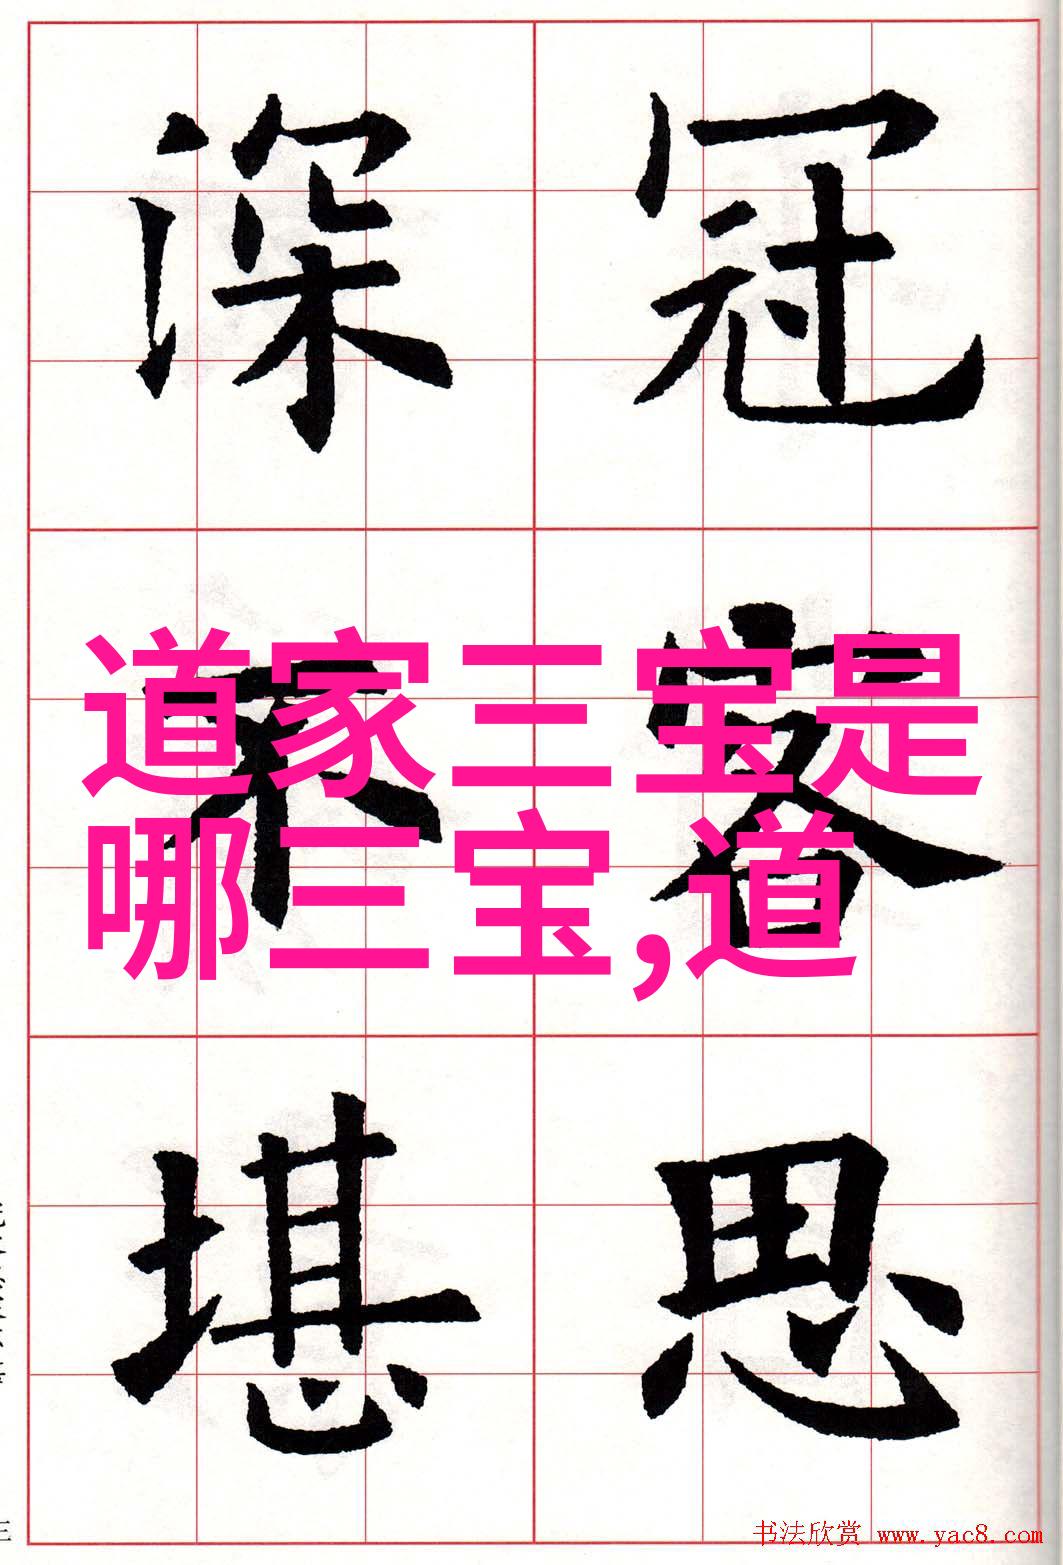 冠
客
思
深
不
堪
道家三宝是
哪三宝,道
书法欣赏 www.yac8.com